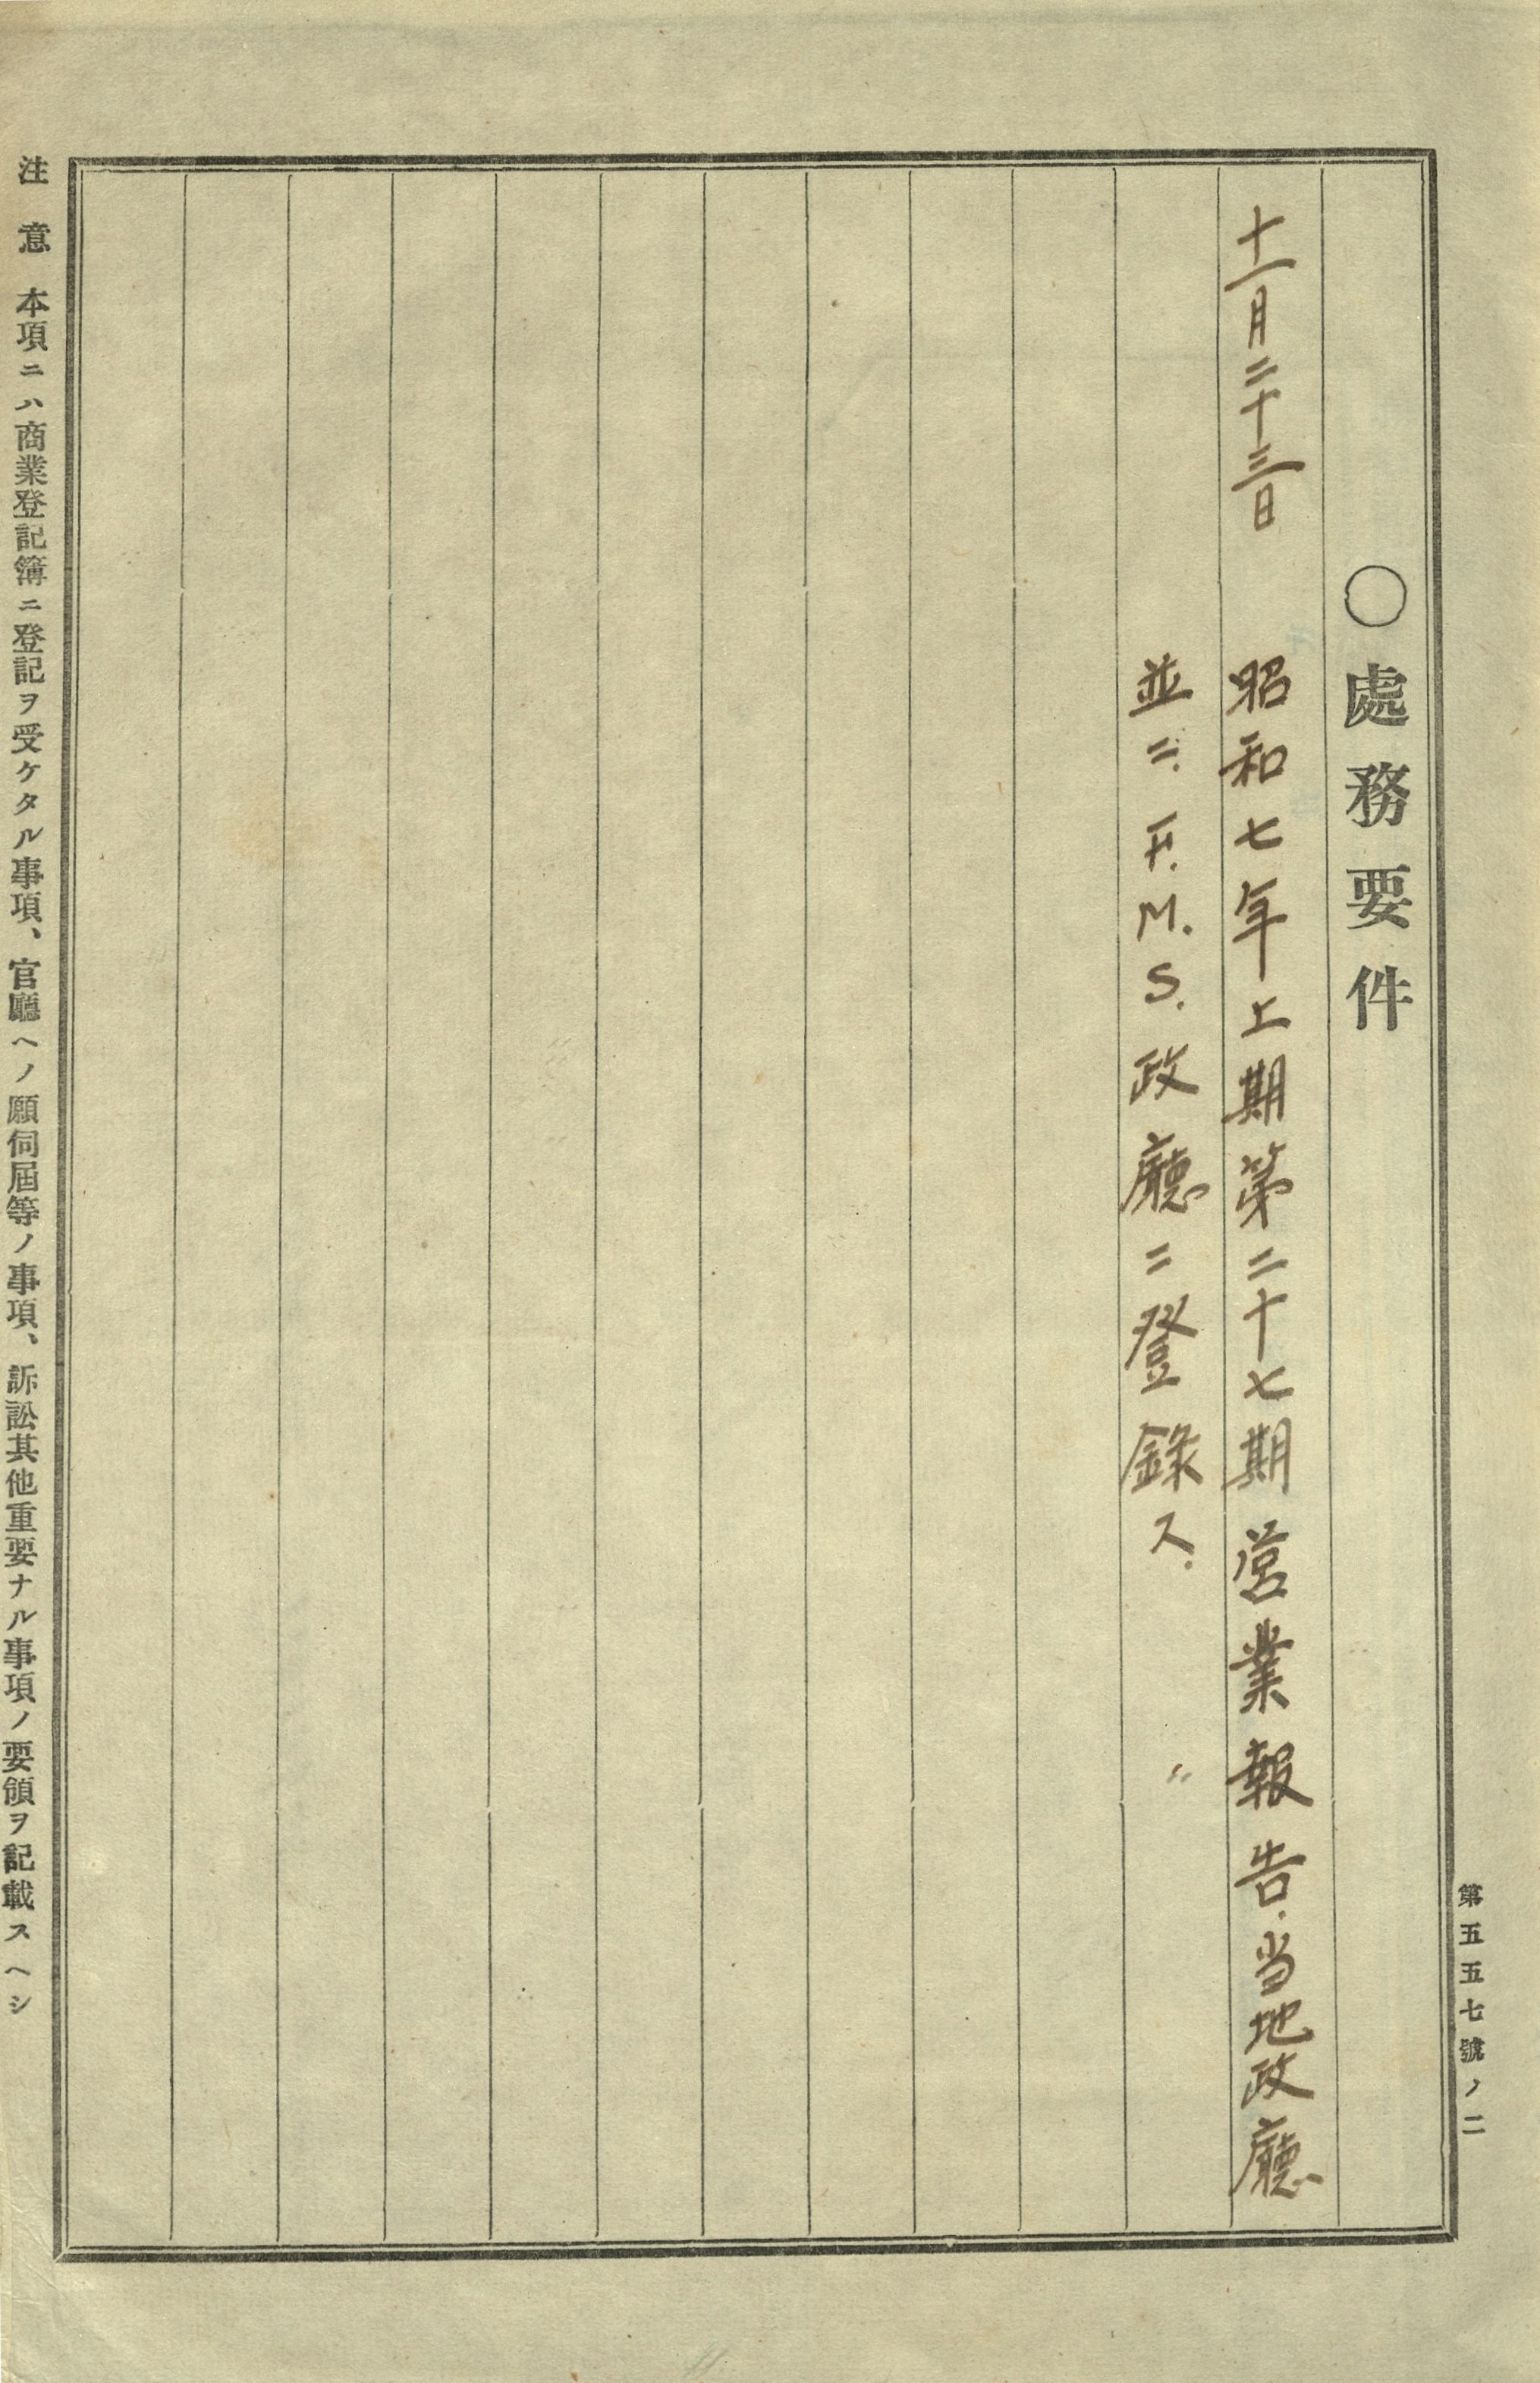 第五五七號ノ二
〇處務要件
十一月二十三日 昭和七年上期第二十七期営業報告.当地政廳
並ニ.F.M.S.政廳ニ登錄ス.
注意 本項ニハ商業登記簿ニ登記ヲ受ケタル事項、官廳ヘノ願伺屆等ノ事項、訴訟其他重要ナル事項ノ要領ヲ記載スヘシ